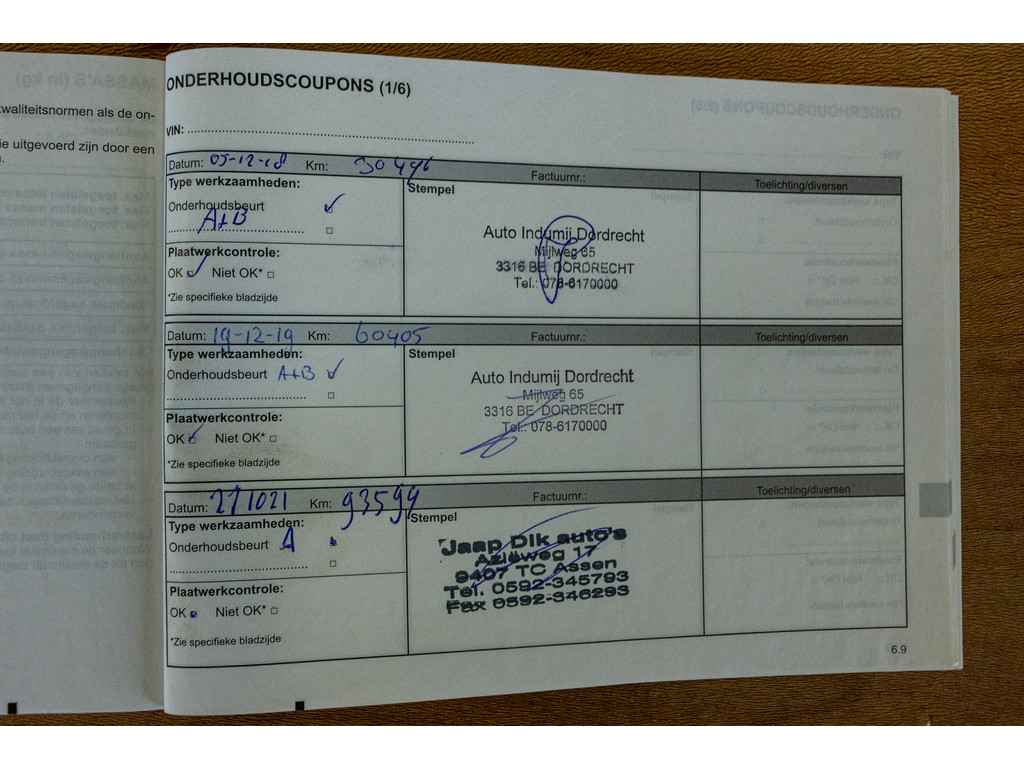 MASSA'S (in kg)
waliteitsnormen als de on-
ie uitgevoerd zijn door een
ONDERHOUDSCOUPONS (1/6)
VIN:
Datum: 05-12-18 Km: 30496 Factuurnr.: Toelichting/diversen
Type werkzaamheden: Stempel
Onderhoudsbeurt
A+B
Auto Indumij Dordrecht
Mijlweg 65
3316 BE DORDRECHT
Tel.: 078-6170000
Plaatwerkcontrole:
OK Niet OK*
*Zie specifieke bladzijde
Datum: 19-12-19 Km: 60405 Factuurnr.: Toelichting/diversen
Type werkzaamheden: Stempel
Onderhoudsbeurt A+B
Auto Indumij Dordrecht
Mijlweg 65
3316 BE DORDRECHT
Tel.: 078-6170000
Plaatwerkcontrole:
OK Niet OK*
*Zie specifieke bladzijde
Datum: 211021 Km: 93599 Factuurnr.: Toelichting/diversen
Type werkzaamheden: Stempel
Onderhoudsbeurt A
Jaap Dik auto's
Azieweg 17
9407 TC Assen
Tel. 0592-345793
Fax 0592-346293
Plaatwerkcontrole:
OK Niet OK*
*Zie specifieke bladzijde
6.9